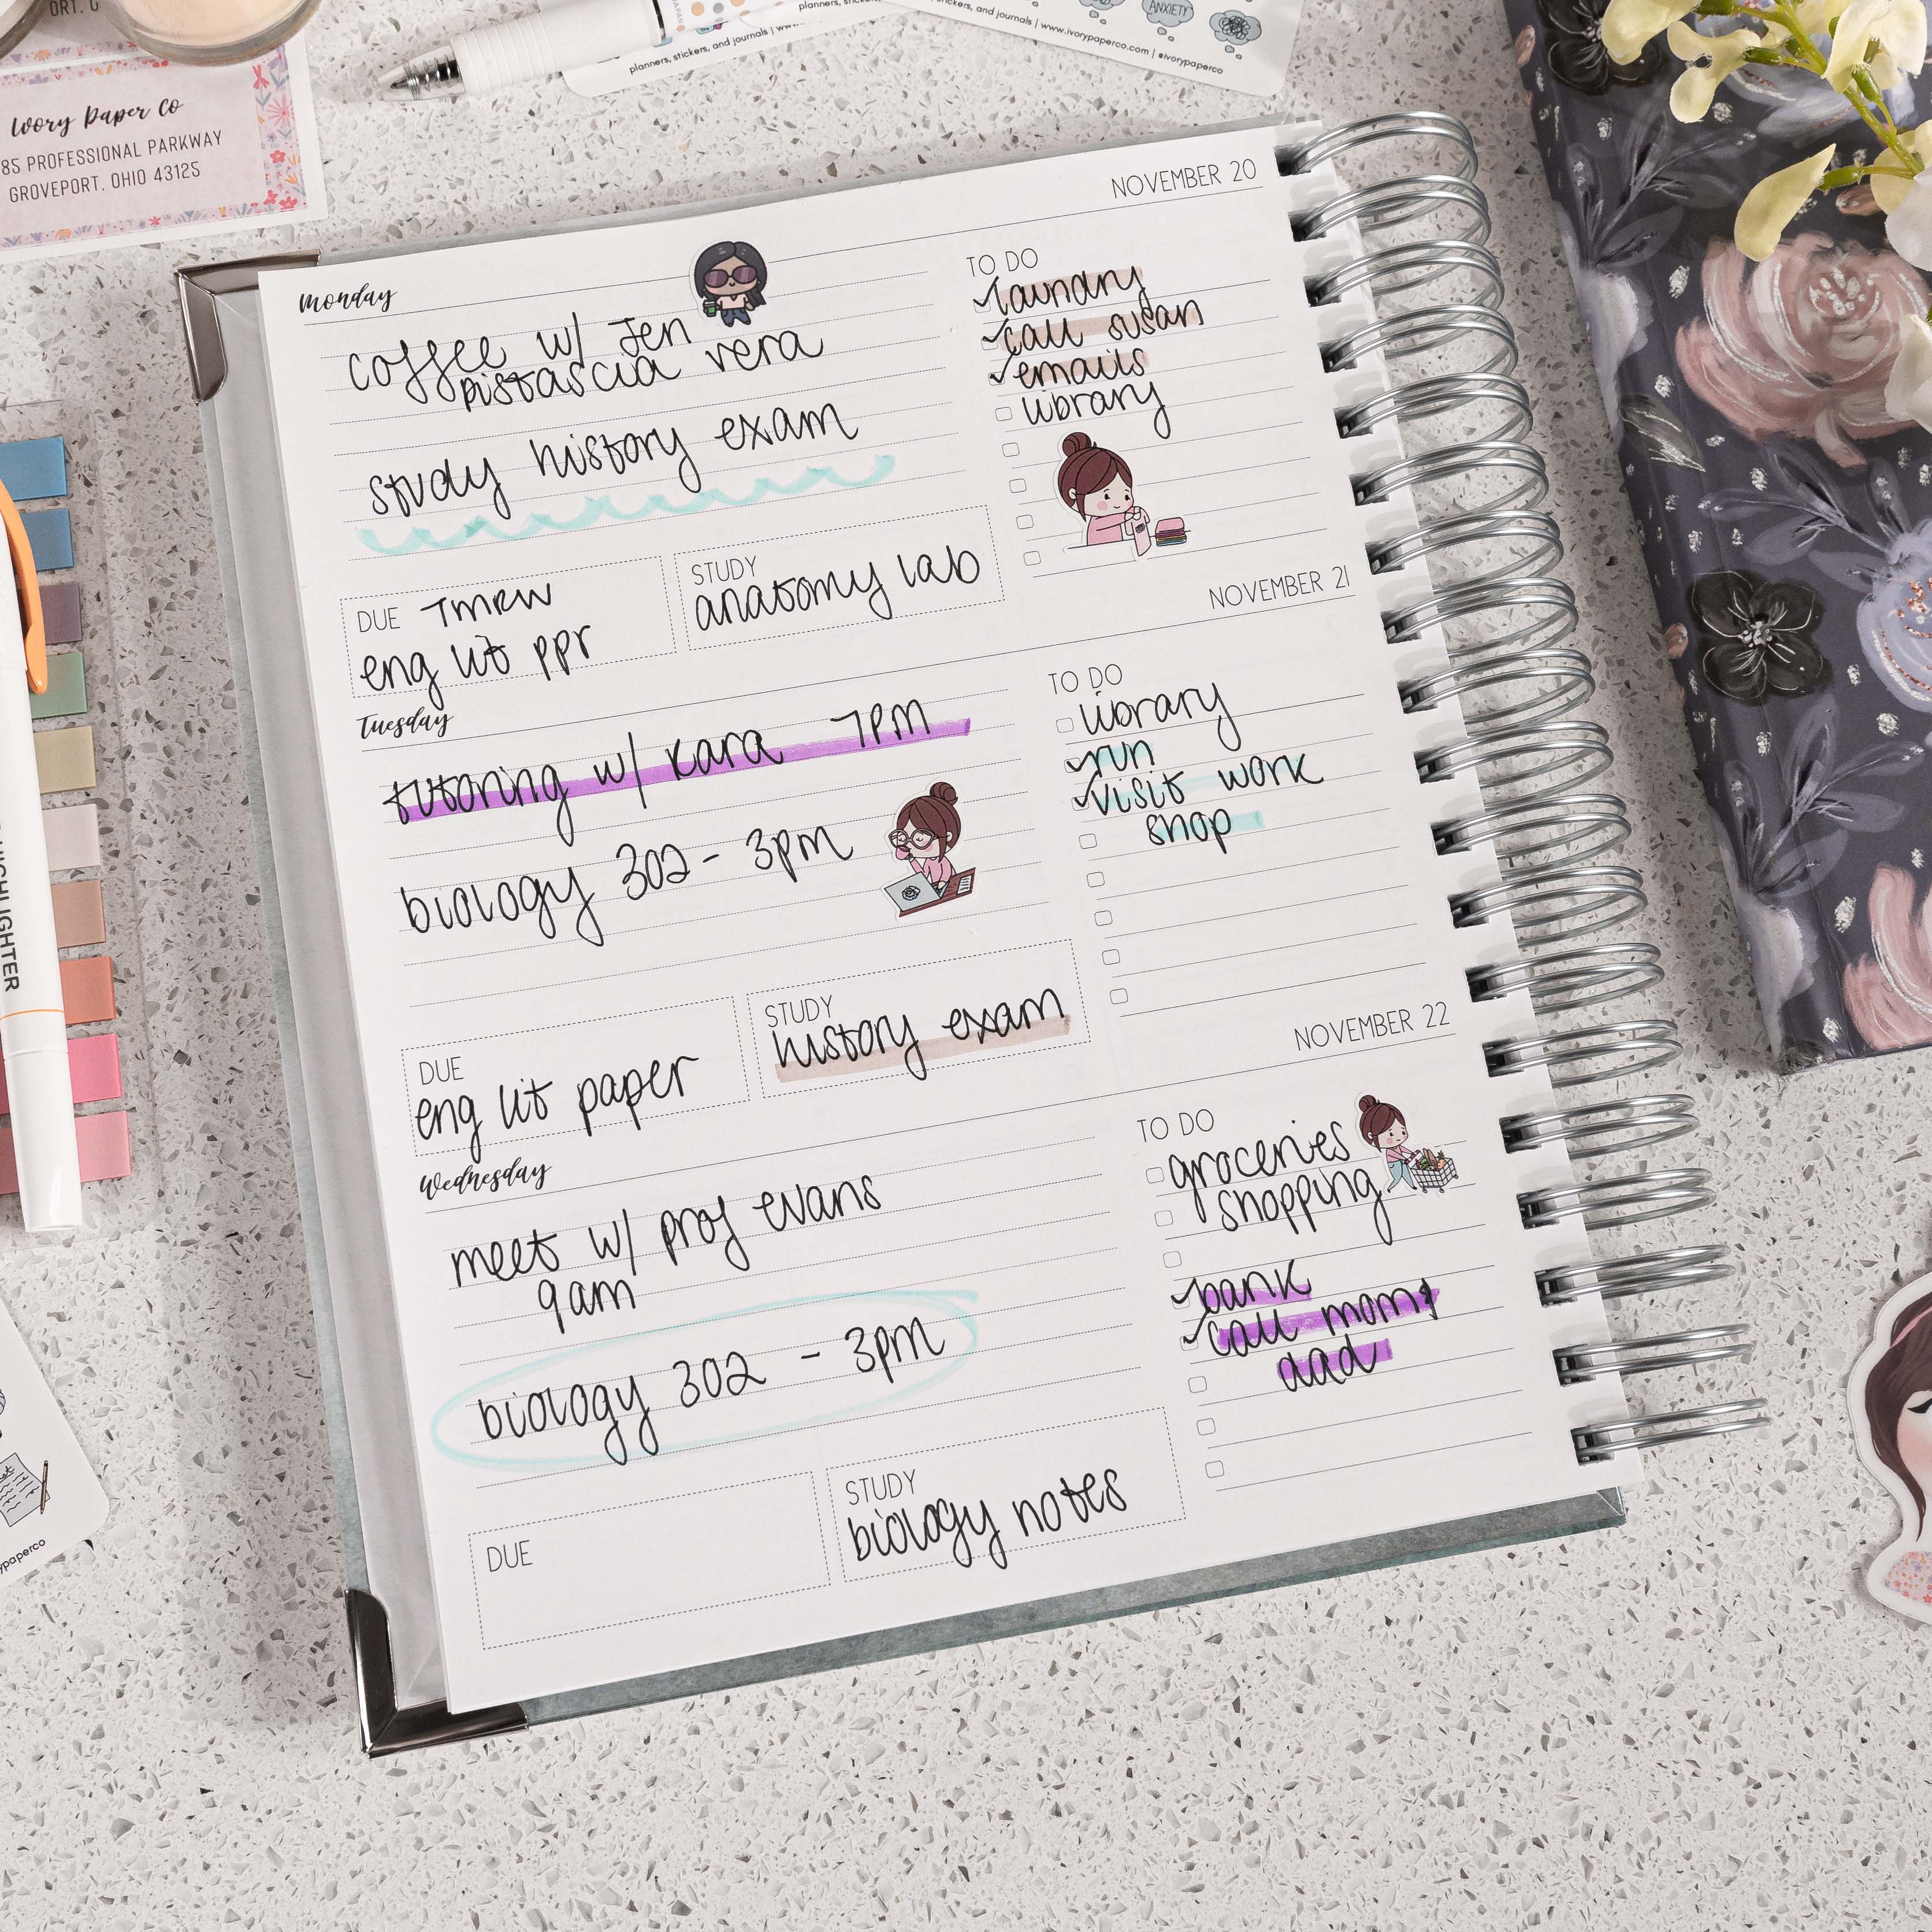 ORT. O
Ivory Paper Co
85 PROFESSIONAL PARKWAY
GROVEPORT, OHIO 43125
planners, stickers, and journals |
and journals | www.ivorypaperco.com | @ivorypaperco
ANXIETY
HIGHLIGHTER
NOVEMBER 20
monday
coffee w/ Jen
pistascia vera
study history exam
TO DO
laundry
call susan
emails
library
DUE TMRW
eng lit ppr
STUDY
anatomy lab
NOVEMBER 21
Tuesday
tutoring w/ kara 7PM
biology 302 - 3pm
TO DO
library
run
visit work
shop
DUE
eng lit paper
STUDY
history exam
NOVEMBER 22
Wednesday
meet w/ prof evans
9am
biology 302 - 3pm
TO DO
groceries
shopping
bank
call mom &
dad
DUE
STUDY
biology notes
ypaperco